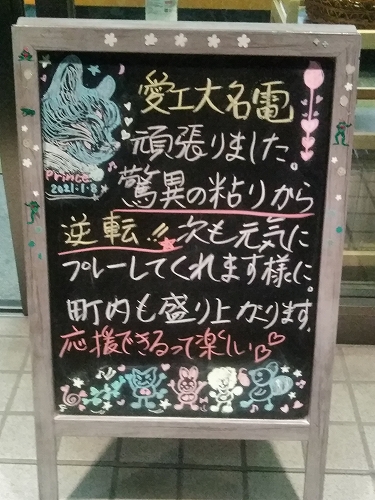 Prince
2021.1.8
愛工大名電
頑張りました。
驚異の粘りから
逆転!!次も元気に
プレーしてくれます様に。
町内も盛り上がります。
応援できるって楽しい